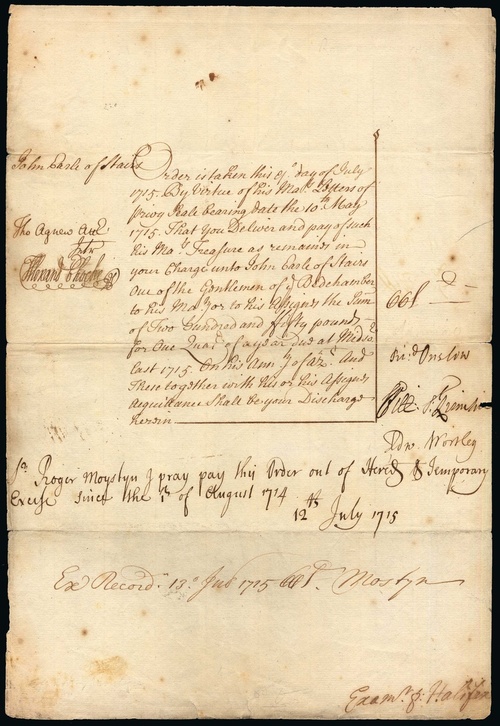 John Earle of Stairs
Order is taken this day of July
1715. By Virtue of his Mats. Letters of
Privy Seale bearing date the 10th. May
1715. That you Deliver and pay of such
his Mats. Treasure as remains in
your Charge unto John Earle of Stairs
One of the Gentlemen of Bedchamber
to his Maj. or to his Assignes the Sum
of Two Hundred and fifty pounds
for One Quar. of a year due at Midsor.
last 1715. On his Ann. of And
These together with his or his Assignes
Acquittance Shall be your Discharge
herein
Tho Agnew
Edward
661
Onslow
Edw Wortley
Sr. Roger Moystyn I pray pay this Order out of Hered & Temporary
Excise since the 1st. of August 1714
12th July 1715
Ex Record. 13. July 1715 Mostyn
Examr. p: Halifax